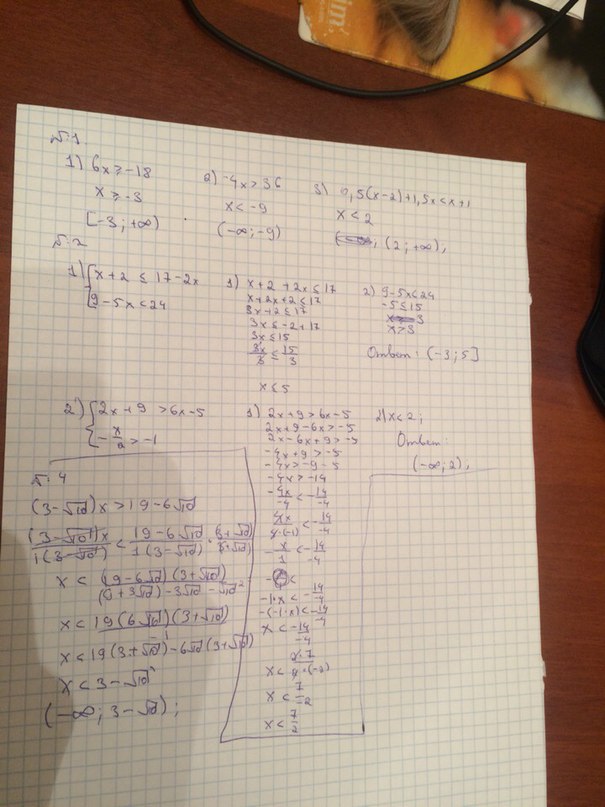 №1.
1) 6x ≥ -18
x ≥ -3
[-3; +∞)
2) -4x > 36
x < -9
(-∞; -9)
3) 0,5(x-2)+1,5x < x+1
x < 2
(2; +∞),
№2
1) { x+2 ≤ 17-2x
9-5x < 24
1) x+2+2x ≤ 17
x+2x+2 ≤ 17
3x+2 ≤ 17
3x ≤ -2+17
3x ≤ 15
3x/3 ≤ 15/3
x ≤ 5
2) 9-5x < 24
-5 ≤ 15
x > 3
Ответ: (-3; 5]
2) { 2x+9 > 6x-5
-x/2 > -1
1) 2x+9 > 6x-5
2x+9-6x > -5
2x-6x+9 > -5
-4x+9 > -5
-4x > -9-5
-4x > -14
-4x/-4 < -14/-4
4x/4·(-1) < -14/-4
-x/1 < -14/-4
-1·x < -14/-4
-(-1·x) < -14/-4
x < -14/-4
x < 7/-2
x < 7/2
2) x < 2;
Ответ:
(-∞; 2),
№4
(3-√10)x > 19-6√10
(3-√10)x/1(3-√10) < 19-6√10/1(3-√10) · 3+√10/3+√10
x < (19-6√10)(3+√10)/(9+3√10)-3√10-√10²
x < 19(6√10)(3+√10)
x < 19(3+√10)-6√10(3+√10)
x < 3-√10
(-∞; 3-√10);